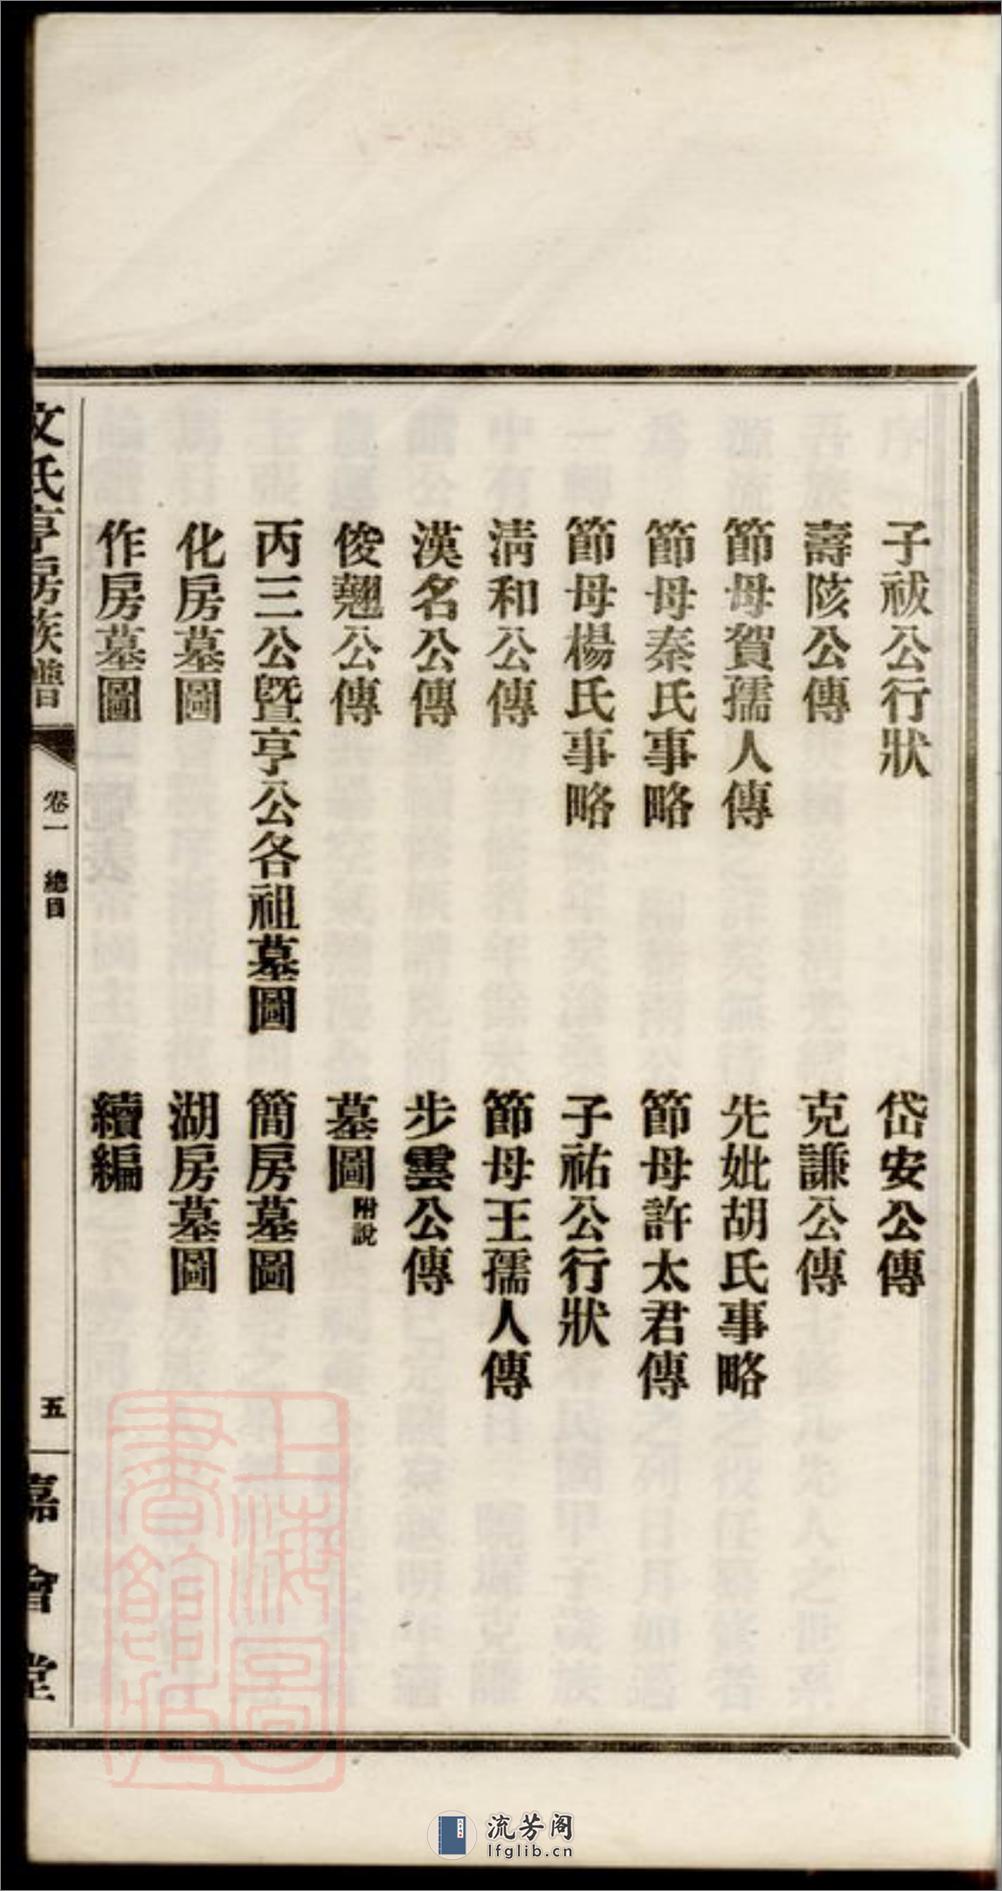 子祓公行狀
岱安公傳
壽陔公傳
克謙公傳
節母賀孺人傳
先妣胡氏事略
節母秦氏事略
節母許太君傳
節母楊氏事略
子祐公行狀
清和公傳
節母王孺人傳
漢名公傳
步雲公傳
俊翹公傳
墓圖附說
丙三公暨亨公各祖墓圖
簡房墓圖
化房墓圖
湖房墓圖
作房墓圖
續編
文氏亨房族譜
卷一 總目
五
嘉會堂
上海圖書館藏
流芳阁
lfglib.cn